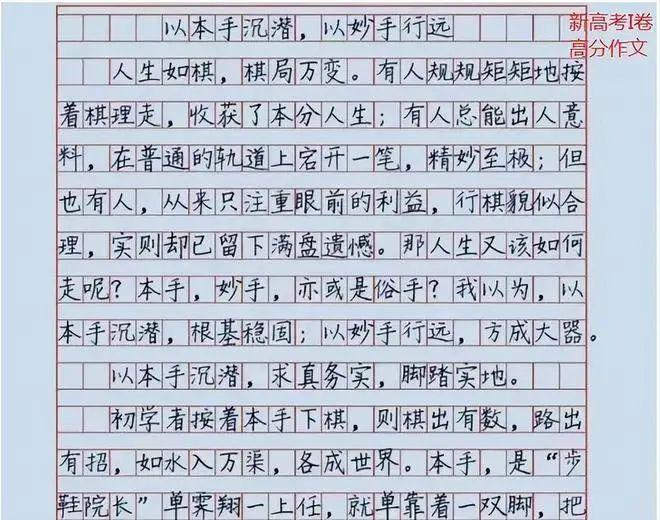 新高考I卷
高分作文
以本手沉潜，以妙手行远
人生如棋，棋局万变。有人规规矩矩地按
着棋理走，收获了本分人生；有人总能出人意
料，在普通的轨道上宕开一笔，精妙至极；但
也有人，从来只注重眼前的利益，行棋貌似合
理，实则却已留下满盘遗憾。那人生又该如何
走呢？本手，妙手，亦或是俗手？我以为，以
本手沉潜，根基稳固；以妙手行远，方成大器。
以本手沉潜，求真务实，脚踏实地。
初学者按着本手下棋，则棋出有数，路出
有招，如水入万渠，各成世界。本手，是“步
鞋院长”单霁翔一上任，就单靠着一双脚，把